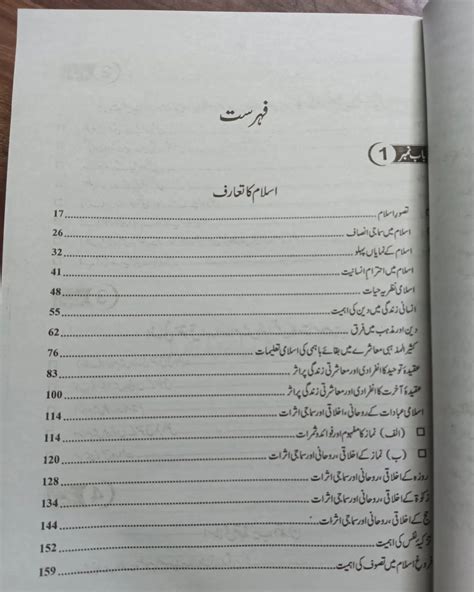 فہرست
باب نمبر 1
اسلام کا تعارف
تصور اسلام ........ 17
اسلام میں سماجی انصاف ........ 26
اسلام کے نمایاں پہلو ........ 32
اسلام میں احترام انسانیت ........ 41
اسلامی نظریہ حیات ........ 48
انسانی زندگی میں دین کی اہمیت ........ 55
دین اور مذہب میں فرق ........ 62
کثیر المذہبی معاشرے میں بقائے باہمی کی اسلامی تعلیمات ........ 76
عقیدۂ توحید کا انفرادی اور معاشرتی زندگی پر اثر ........ 83
عقیدۂ آخرت کا انفرادی اور معاشرتی زندگی پر اثر ........ 100
اسلامی عبادات کے روحانی، اخلاقی اور سماجی اثرات ........ 114
(الف) نماز کا مفہوم اور فوائد و ثمرات ........ 114
(ب) نماز کے اخلاقی، روحانی اور سماجی اثرات ........ 120
روزہ کے اخلاقی، روحانی اور سماجی اثرات ........ 128
زکوٰۃ کے اخلاقی، روحانی اور سماجی اثرات ........ 134
حج کے اخلاقی، روحانی اور سماجی اثرات ........ 144
تزکیۂ نفس کی اہمیت ........ 152
فروغ اسلام میں تصوف کی اہمیت ........ 159